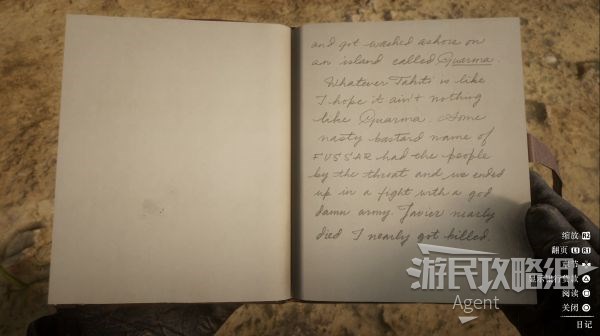 and got washed ashore on
an island called Guarma.
Whatever Tahiti is like
I hope it ain't nothing
like Guarma. Some
nasty bastard name of
FUSSAR had the people
by the throat and we ended
up in a fight with a god
damn army. Javier nearly
died I nearly got killed.
缩放 R2
翻页 L1 R1
显示银行借款
阅读
关闭
日记
游民攻略组
Agent